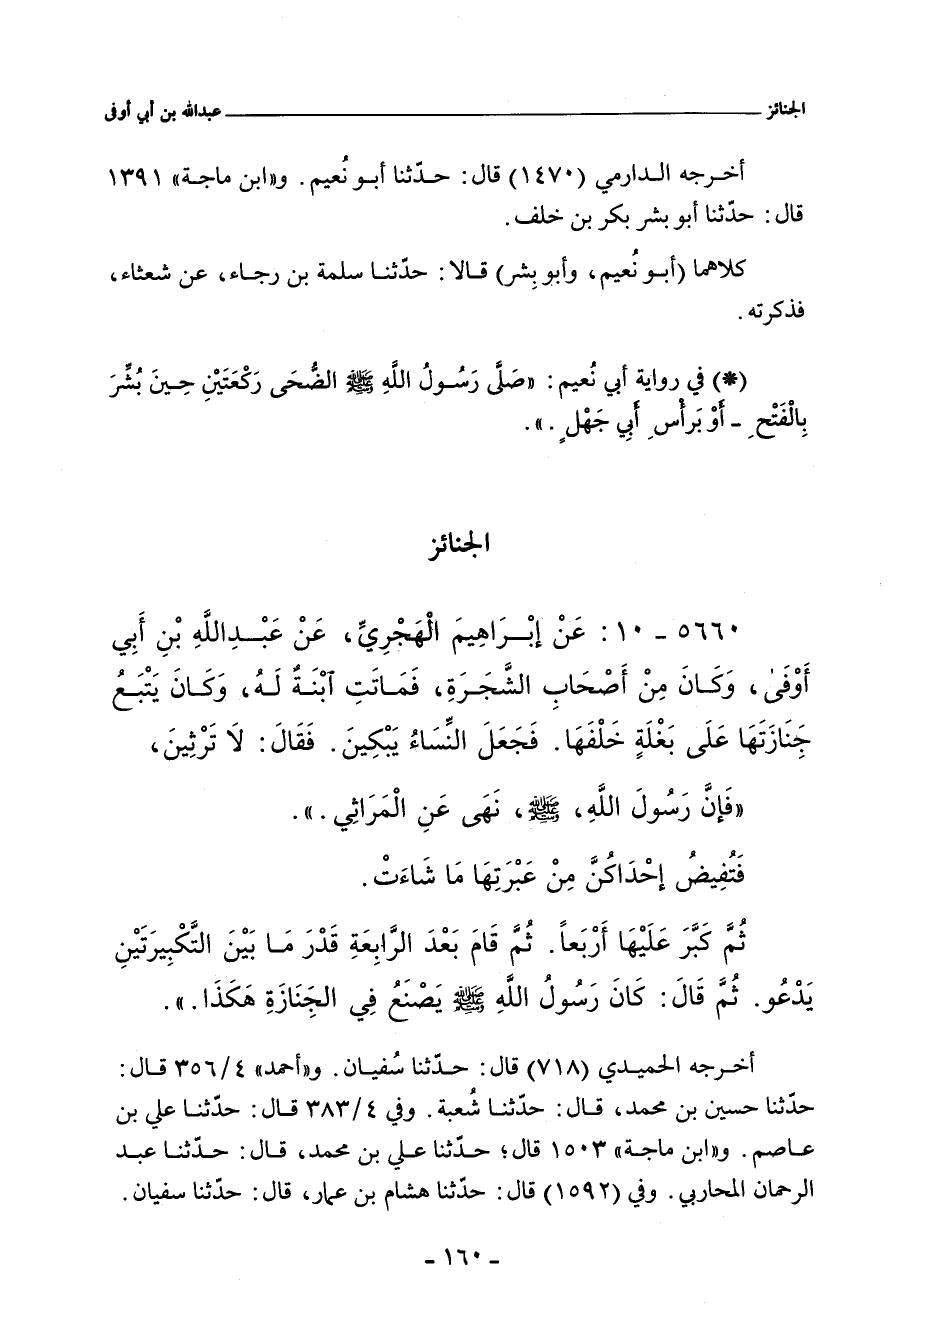 الجنائز ـــــــــ عبدالله بن أبي أوفى
أخرجه الدارمي (١٤٧٠) قال: حدّثنا أبو نُعيم. و«ابن ماجة» ١٣٩١
قال: حدّثنا أبو بشر بكر بن خلف.
كلاهما (أبو نُعيم، وأبو بِشر) قالا: حدّثنا سلمة بن رجاء، عن شعثاء،
فذكرته.
(*) في رواية أبي نُعيم: «صَلَّى رَسُولُ اللَّهِ ﷺ الضُّحَى رَكْعَتَيْنِ حِينَ بُشِّرَ
بِالْفَتْحِ ـ أَوْ بَرَأْسِ أَبِي جَهْلٍ.».
الجنائز
٥٦٦٠ ـ ١٠: عَنْ إِبْرَاهِيمَ الْهَجْرِيِّ، عَنْ عَبْدِاللَّهِ بْنِ أَبِي
أَوْفَىٰ، وَكَانَ مِنْ أَصْحَابِ الشَّجَرَةِ، فَمَاتَتِ ٱبْنَةٌ لَهُ، وَكَانَ يَتْبَعُ
جِنَازَتَهَا عَلَى بَغْلَةٍ خَلْفَهَا. فَجَعَلَ النِّسَاءُ يَبْكِينَ. فَقَالَ: لَا تَرْثِينَ،
«فَإِنَّ رَسُولَ اللَّهِ، ﷺ، نَهَى عَنِ الْمَرَاثِي.».
فَتُفِيضُ إِحْدَاكُنَّ مِنْ عَبْرَتِهَا مَا شَاءَتْ.
ثُمَّ كَبَّرَ عَلَيْهَا أَرْبَعاً. ثُمَّ قَامَ بَعْدَ الرَّابِعَةِ قَدْرَ مَا بَيْنَ التَّكْبِيرَتَيْنِ
يَدْعُو. ثُمَّ قَالَ: كَانَ رَسُولُ اللَّهِ ﷺ يَصْنَعُ فِي الجَنَازَةِ هَكَذَا.».
أخرجه الحميدي (٧١٨) قال: حدّثنا سُفيان. و«أحمد» ٣٥٦/٤ قال:
حدّثنا حسين بن محمد، قال: حدّثنا شُعبة. وفي ٣٨٣/٤ قال: حدّثنا علي بن
عاصم. و«ابن ماجة» ١٥٠٣ قال؛ حدّثنا علي بن محمد، قال: حدّثنا عبد
الرحمان المحاربي. وفي (١٥٩٢) قال: حدّثنا هشام بن عمار، قال: حدّثنا سفيان.
ـ ١٦٠ ـ